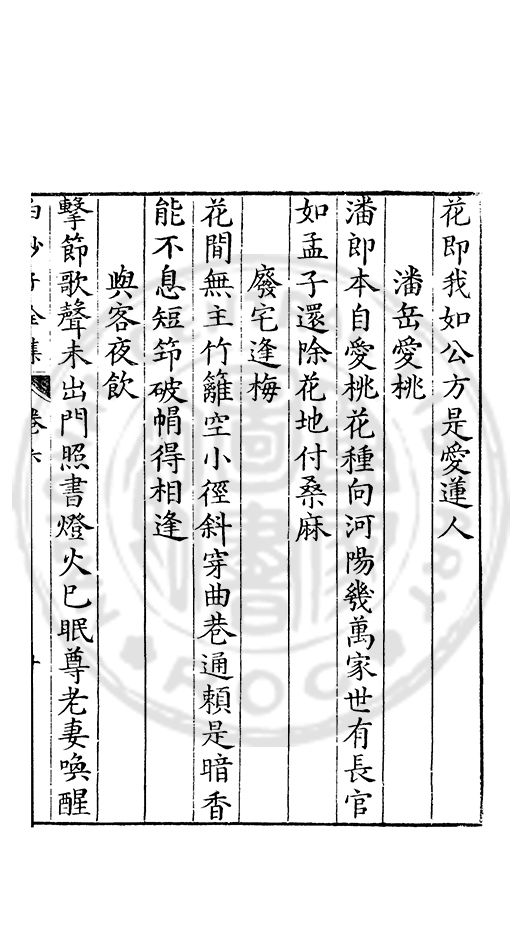 花即我如公方是愛蓮人
潘岳愛桃
潘郎本自愛桃花種向河陽幾萬家世有長官
如孟子還除花地付桑麻
廢宅逢梅
花間無主竹籬空小徑斜穿曲巷通頼是暗香
能不息短筇破帽得相逢
與客夜飲
擊節歌聲未出門照書燈火已眠尊老妻喚醒